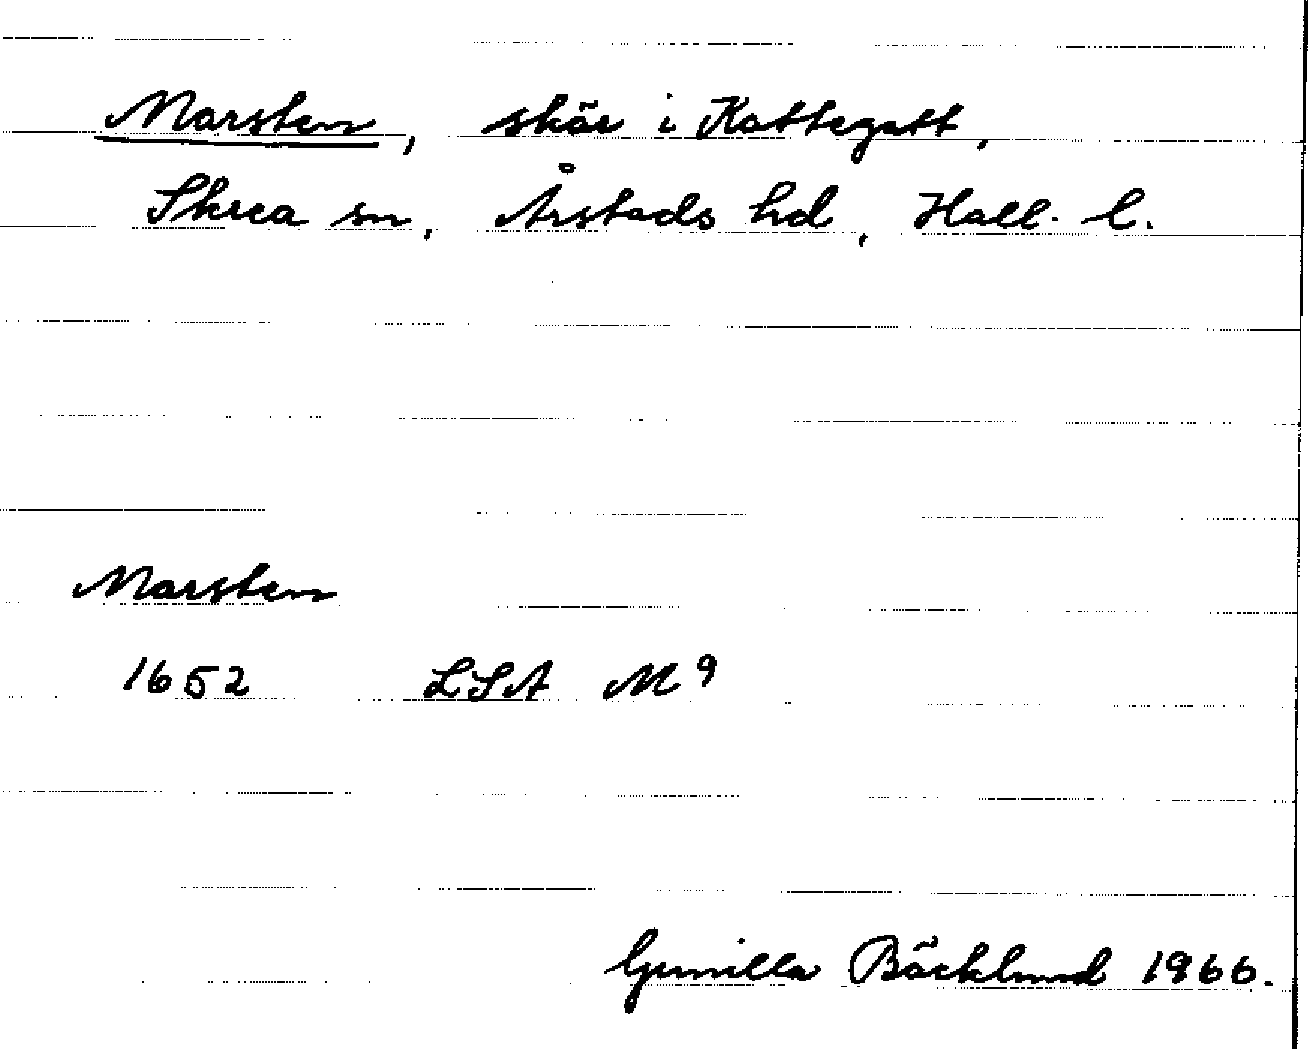 Marsten, skär i Kattegatt,
Skrea sn, Årstads hd, Hall. l.
Marsten
1652 LSA M 9
Gunilla Bäcklund 1966.